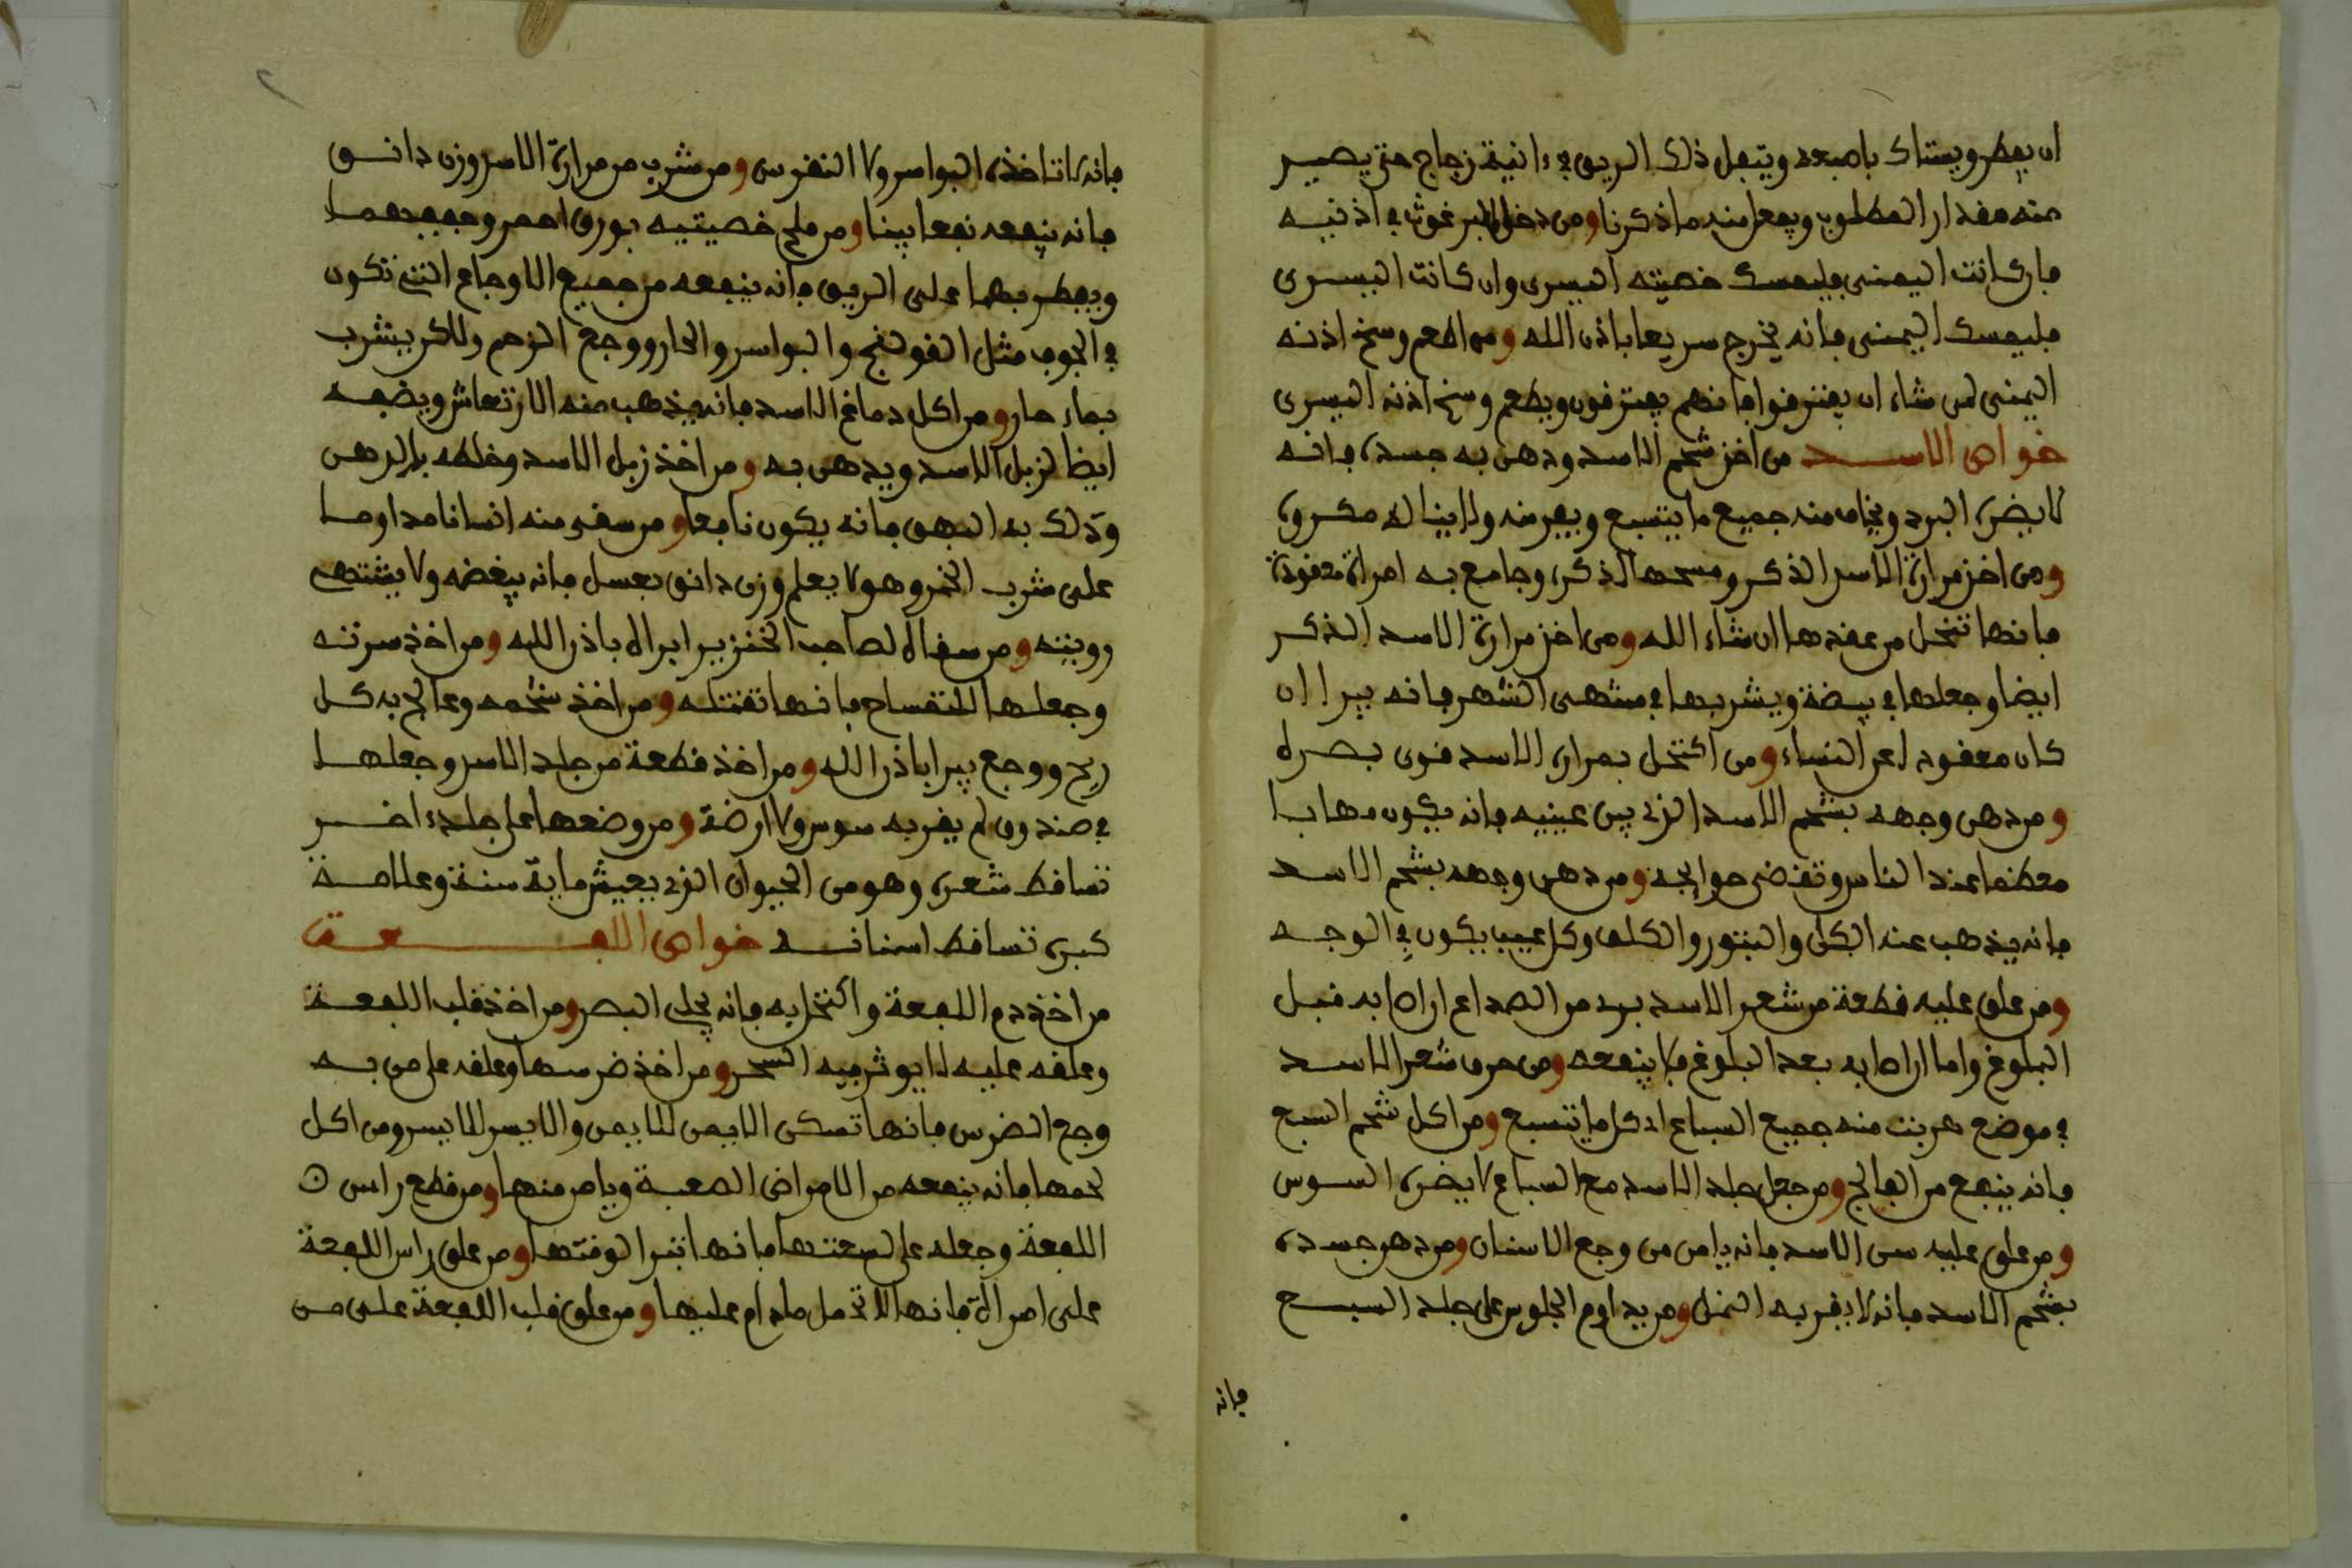 ان يفطر ويستاك باصبعه ويتفل ذلك الريق في ءانية زجاج حتى يصير
منه مقدار المطلوب ويفعل منه ما ذكرنا ومن دخل البرغوث في اذنيه
فان كانت اليمنى فليمسك خصيته اليسرى وان كانت اليسرى
فليمسك اليمنى فانه يخرج سريعا باذن الله ومن اطعم وسخ اذنه
اليمنى لمن شاء ان يفترقوا فانهم يفترقون ويطعم وسخ اذنه اليسرى
خواص الاسد من اخذ شحم الاسد ودهن به جسده فانه
لا يضره البرد ويخاف منه جميع ما يتسبع ويفر منه ولا يناله مكروه
ومن اخذ مرارة الاسد الذكر ومسحها لذكره وجامع به امراة معقودة
فانها تنحل من عقدها ان شاء الله ومن اخذ مرارة الاسد الذكر
ايضا وجعلها في بيضة ويشربها في منتهى الشهر فانه يبرا ان
كان معقودا عن النساء ومن اكتحل بمرارة الاسد قوى بصره
ومن دهن وجهه بشحم الاسد الذي بين عينيه فانه يكون مهابا
معظما عند الناس وتقضى حوايجه ومن دهن وجهه بشحم الاسد
فانه يذهب عنه الكلى والبثور والكلف وكل عيب يكون في الوجه
ومن علق عليه قطعة من شعر الاسد برد من الصداع ان اصابه قبل
البلوغ واما ان اصابه بعد البلوغ فلا ينفعه ومن حرق شعر الاسد
في موضع هربت منه جميع السباع اد كل ما يتسبع ومن اكل شحم السبع
فانه ينفع من الفالج ومن جعل جلد الاسد مع السباع لا يضره السوس
ومن علق عليه سن الاسد فانه يامن من وجع الاسنان ومن دهن جسده
بشحم الاسد فانه لا يقربه النمل ومن يداوم الجلوس على جلد السبع
فانه
فانه لا تاخذه البواسر ولا النقرس ومن شرب من مرارة الاسد وزن دانق
فانه ينفعه نفعا بينا ومن ملح خصيتيه ببورق احمر وجففهما
ويفطر بهما على الريق فانه ينفعه من جميع الاوجاع التي تكون
في الجوف مثل القولنج والبواسر والحار ووجع الرحم ولاكن يشرب
بماء حار ومن اكل دماغ الاسد فانه يذهب منه الارتعاش ويضعه
ايضا لزبل الاسد ويدهن به ومن اخذ زبل الاسد وخلطه بالدهن
ودلك به البهق فانه يكون نافعا ومن سقى منه انسانا مداوما
على شرب الخمر وهو لا يعلم وزن دانق بعسل فانه يبغضه ولا يشتهى
رويته ومن سقاه لصاحب الخنزير ابراه باذن الله ومن اخذ سرته
وجعلها للتمساح فانها تقتله ومن اخذ شحمه وعالج به كل
ريح ووجع يبرا باذن الله ومن اخذ قطعة من جلد الاسد وجعلها
في صندوق لم يقربه سوس ولا ارضة ومن وضعها على جلد ءاخر
تساقط شعره وهو من الحيوان الذي يعيش ماية سنة وعلامة
كبره تساقط اسنانه خواص اللفعة
من اخذ دم اللفعة واكتحل به فانه يجلى البصر ومن اخذ قلب اللفعة
وعلقه عليه لا يوثر فيه السحر ومن اخذ ضرسها وعلقه على من به
وجع الضرس فانها تسكن الايمن للايمن والايسر للايسر ومن اكل
لحمها فانه ينفعه من الامراض الصعبة ويامن منها ومن قطع راس ن
اللفعة وجعله على لسعتها فانها تبرا لوقتها ومن علق راس اللفعة
على امراة فانها لا تحمل ما دام عليها ومن علق قلب اللفعة على من